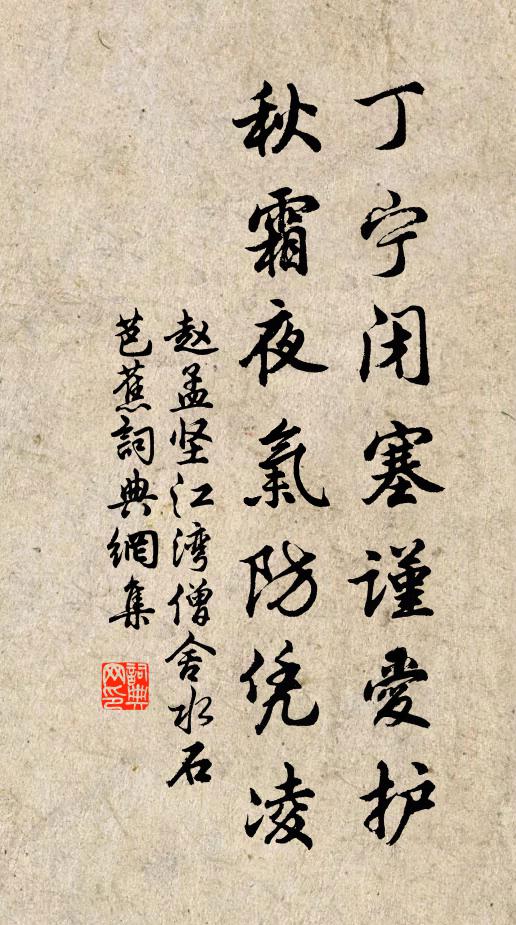 丁宁闭塞谨愛护
秋霜夜氣防凭凌
赵孟坚江湾僧舍水石
芭蕉詞典網集
詞典网印